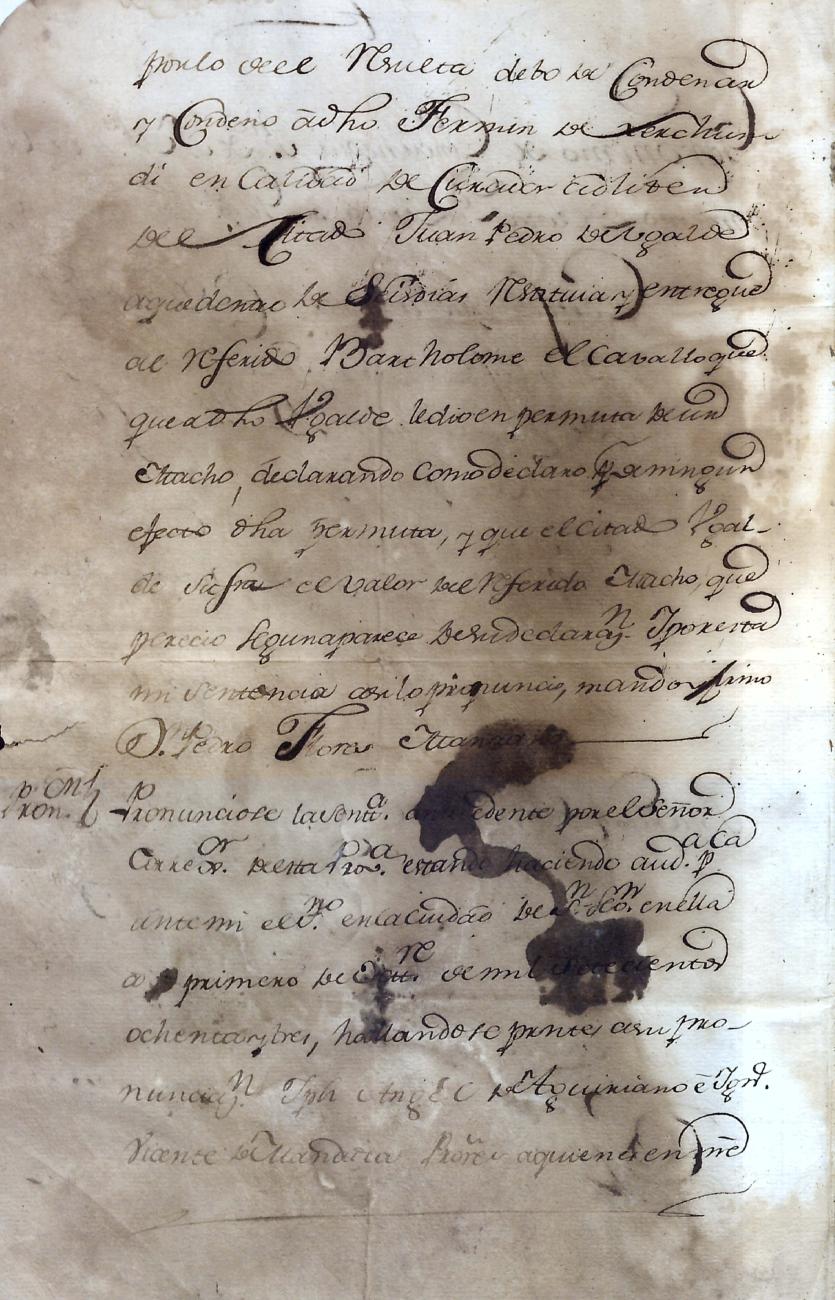 por lo de el Resulta debo de Condenar
y Condeno a dho Fermin de
di en Calidad de Curador adliten
del Citado Juan Pedro de Ugalde
a que dentro de Seis dias Restituia y entregue
al referido Bartholome el Cavallo que
que a dho Ugalde le dio en permuta de un
Macho, declarando como declaro por de ningun
efecto dha permuta, y que el citado Ugal-
de sufra el valor del referido Macho, que
perecio segun aparece de su declaraⁿ. Y por esta
mi sentencia asi lo pronuncio, mando y firmo
D.ⁿ Pedro Flores Manzano
Pronⁿ.
Pronunciose la sentᵃ. antecedente por el Señor
Correᵒʳ. de esta Proᵃ. estando haciendo audᵃ. pᶜᵃ
ante mi el Sⁿᵒ. en la ciudad de Sⁿ. Seⁿ. en ella
a primero de de mil setecientos
ochenta y tres, hallandose prntes a su pro-
nunciaⁿ. Jph Angel de Aguiriano e Ygnᵒ.
Vicente de Procʳᵉˢ a quienes en